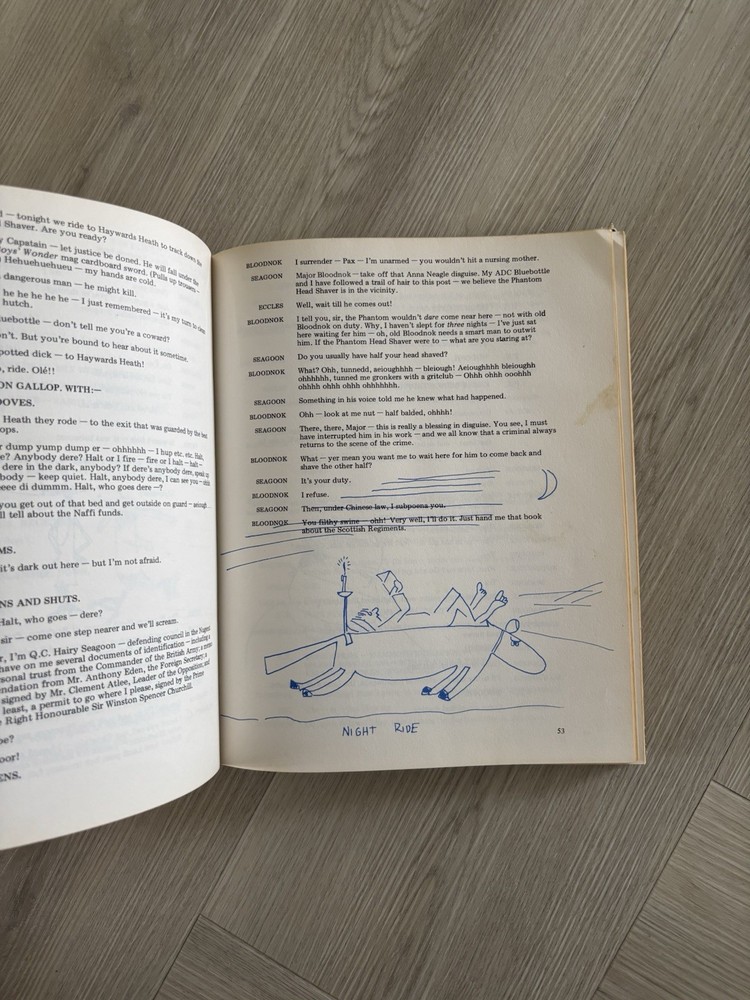 — tonight we ride to Haywards Heath to track down the
Shaver. Are you ready?
Capstain — let justice be doned. He will fall under the
Boys' Wonder mag cardboard sword. (Pulls up trousers —
Hehuehuehueu — my hands are cold.
dangerous man — he might kill.
he he he he he — I just remembered — it's my turn to
hutch.
uebottle — don't tell me you're a coward?
n't. But you're bound to hear about it sometime.
potted dick — to Haywards Heath!
, ride. Olé!!
ON GALLOP. WITH:—
OOVES.
Heath they rode — to the exit that was guarded by the best
ops.
r dump yump dump er — ohhhhhh — I hup etc. etc. Halt,
e? Anybody dere? Halt or I fire — fire or I halt — halt —
dere in the dark, anybody? If dere's anybody dere, speak up
body — keep quiet. Halt, anybody dere, I can see you —
eee di dummm. Halt, who goes dere —?
you get out of that bed and get outside on guard —
ll tell about the Naffi funds.
MS.
it's dark out here — but I'm not afraid.
NS AND SHUTS.
Halt, who goes — dere?
sir — come one step nearer and we'll scream.
r, I'm Q.C. Hairy Seagoon — defending council in the
have on me several documents of identification — including a
sonal trust from the Commander of the British Army, a
ndation from Mr. Anthony Eden, the Foreign Secretary, a
signed by Mr. Clement Atlee, Leader of the Opposition, and
least, a permit to go where I please, signed by the Prime
Right Honourable Sir Winston Spencer Churchill.
oe?
oor!
ENS.
BLOODNOK I surrender — Pax — I'm unarmed — you wouldn't hit a nursing mother.
SEAGOON Major Bloodnok — take off that Anna Neagle disguise. My ADC Bluebottle
and I have followed a trail of hair to this post — we believe the Phantom
Head Shaver is in the vicinity.
ECCLES Well, wait till he comes out!
BLOODNOK I tell you, sir, the Phantom wouldn't dare come near here — not with old
Bloodnok on duty. Why, I haven't slept for three nights — I've just sat
here waiting fer him — oh, old Bloodnok needs a smart man to outwit
him. If the Phantom Head Shaver were to — what are you staring at?
SEAGOON Do you usually have half your head shaved?
BLOODNOK What? Ohh, tunnedd, aeioughhhh — bleiough! Aeioughhhh bleioughh
ohhhhhh, tunned me gronkers with a gritclub — Ohhh ohhh ooohhh
ohhhh ohhh ohhh ohhhhhhh.
SEAGOON Something in his voice told me he knew what had happened.
BLOODNOK Ohh — look at me nut — half balded, ohhhh!
SEAGOON There, there, Major — this is really a blessing in disguise. You see, I must
have interrupted him in his work — and we all know that a criminal always
returns to the scene of the crime.
BLOODNOK What — yer mean you want me to wait here for him to come back and
shave the other half?
SEAGOON It's your duty.
BLOODNOK I refuse.
SEAGOON Then, under Chinese law, I subpoena you.
BLOODNOK You filthy swine — ohh! Very well, I'll do it. Just hand me that book
about the Scottish Regiments.
NIGHT RIDE
53